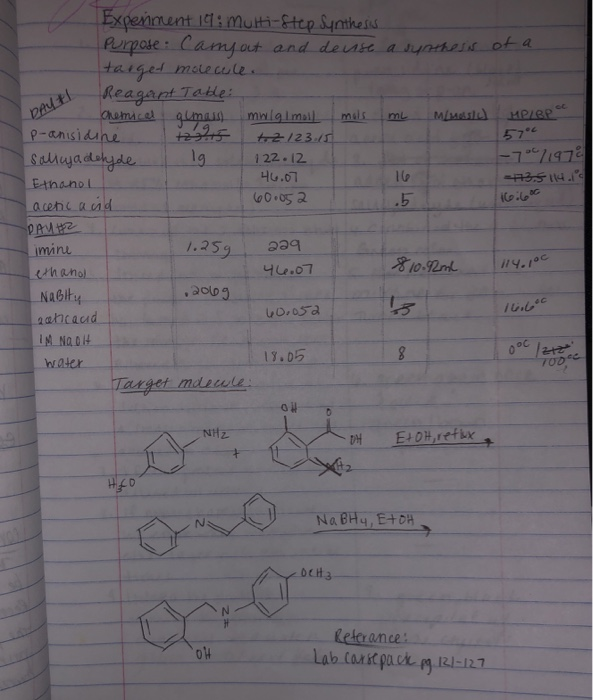 Experiment 19: Multi-Step Synthesis
Purpose: Carryout and devise a synthesis of a
target molecule.
Reagant Table:
DAY #1
chemical g(mass) mw(g/mol) mols mL M(mols/L) MP/BP °C
p-anisidine 123.15 1g 1.2 123.15 57°C
Salicyadehyde 1g 122.12 -7°C/197°C
Ethanol 46.07 16 -173.5 114.1°C
acetic acid 60.052 .5 16.6°C
DAY #2
imine 1.25g 229
ethanol 46.07 8 10.92mL 114.1°C
NaBH4 .206g
acticacid 60.052 .5 1 16.6°C
1M NaOH
water 18.05 8 0°C / 212° 100°C
Target mdecule:
OH O
NH2 + OH EtOH, reflux
NH2
H3CO
N NaBH4, EtOH
OCH3
N
H
OH
Referance:
Lab carsepack pg 121-127